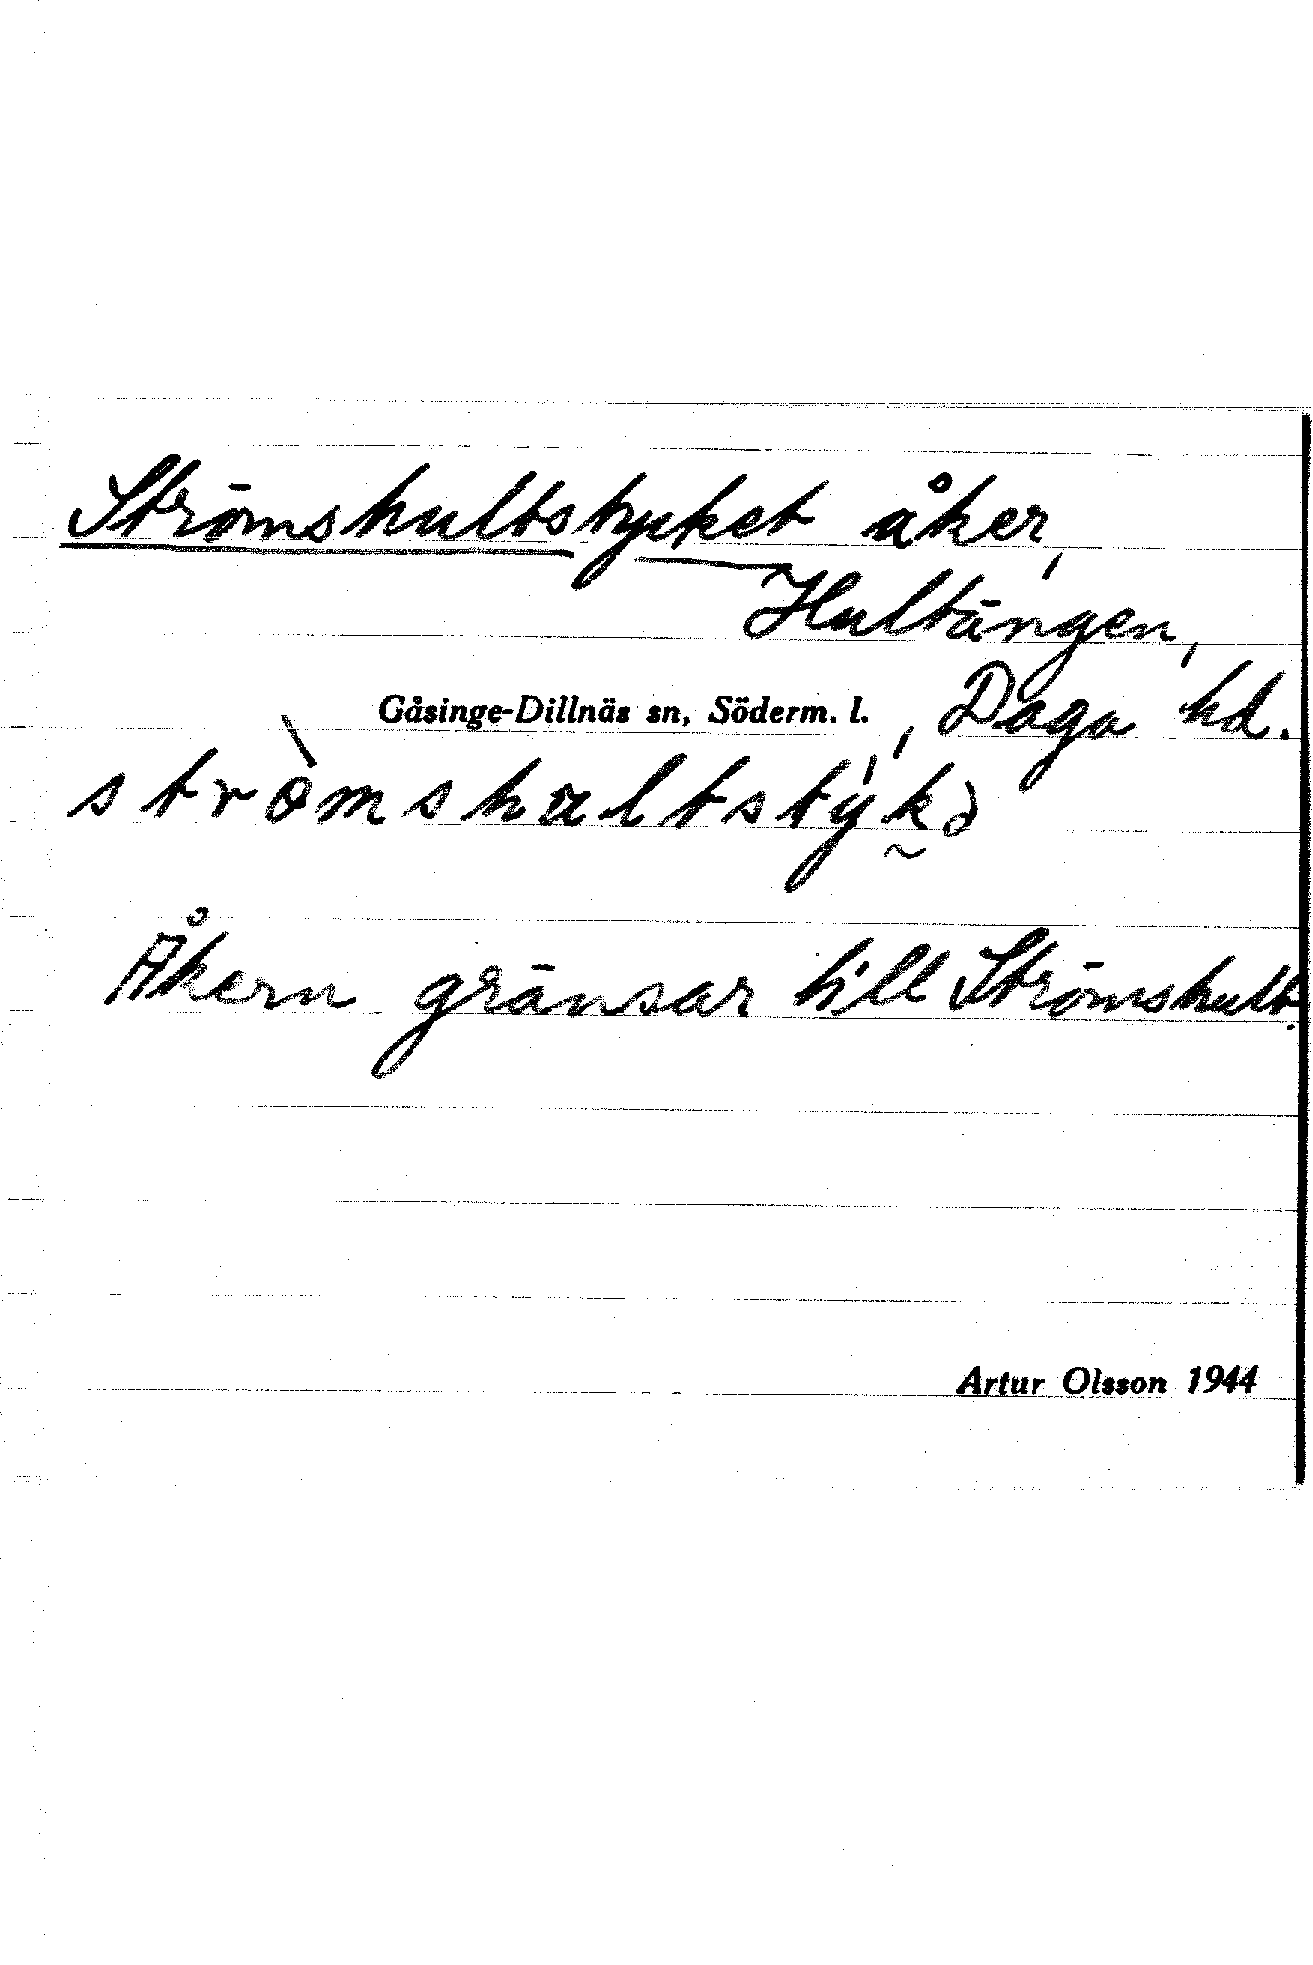 Strömshultstycket åker,
Hultängen,
Gåsinge-Dillnäs sn, Söderm. l., Daga hd.
strömshultstykə
Åkern gränsar till Strömshult.
Artur Olsson 1944